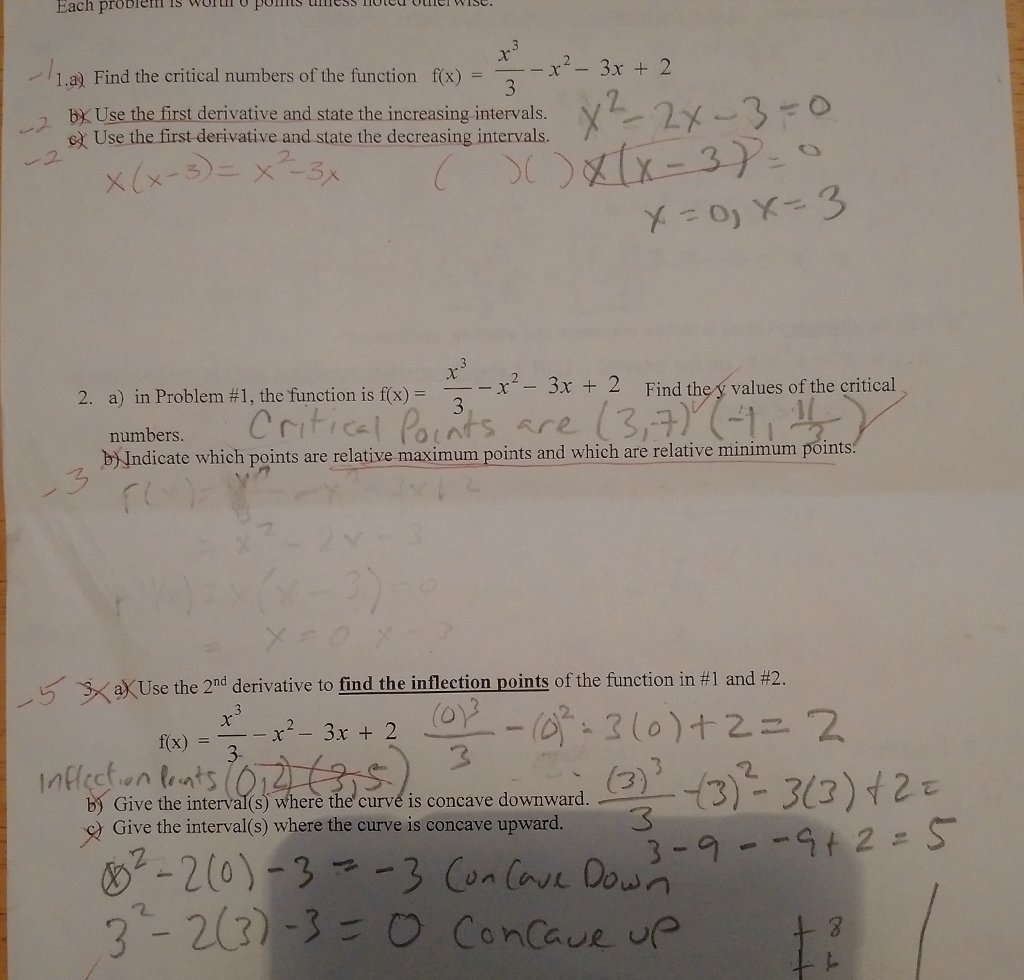 Each problem is worth 6 points unless noted otherwise.
-1 1.a) Find the critical numbers of the function f(x) = x³/3 – x² – 3x + 2
-2 b) Use the first derivative and state the increasing intervals.
x² - 2x - 3 = 0
-2 c) Use the first derivative and state the decreasing intervals.
x(x-3) = x² - 3x ( )( ) x(x-3) = 0
x = 0, x = 3
2. a) in Problem #1, the function is f(x) = x³/3 – x² – 3x + 2 Find the y values of the critical
numbers. Critical Points are (3,-7) (-1, 11/3)
b) Indicate which points are relative maximum points and which are relative minimum points.
-3
= x² - 2x - 3
x(x-3) = 0
= x = 0 x - 3
-5 3. a) Use the 2nd derivative to find the inflection points of the function in #1 and #2.
f(x) = x³/3 – x² – 3x + 2 (0)³/3 - (0)² - 3(0) + 2 = 2
Inflection Points (0,2) (3,5)
b) Give the interval(s) where the curve is concave downward. (3)³/3 - (3)² - 3(3) + 2 =
c) Give the interval(s) where the curve is concave upward.
3 - 9 - - 9 + 2 = 5
² - 2(0) - 3 = -3 Concave Down
3² - 2(3) - 3 = 0 Concave up
+ 8